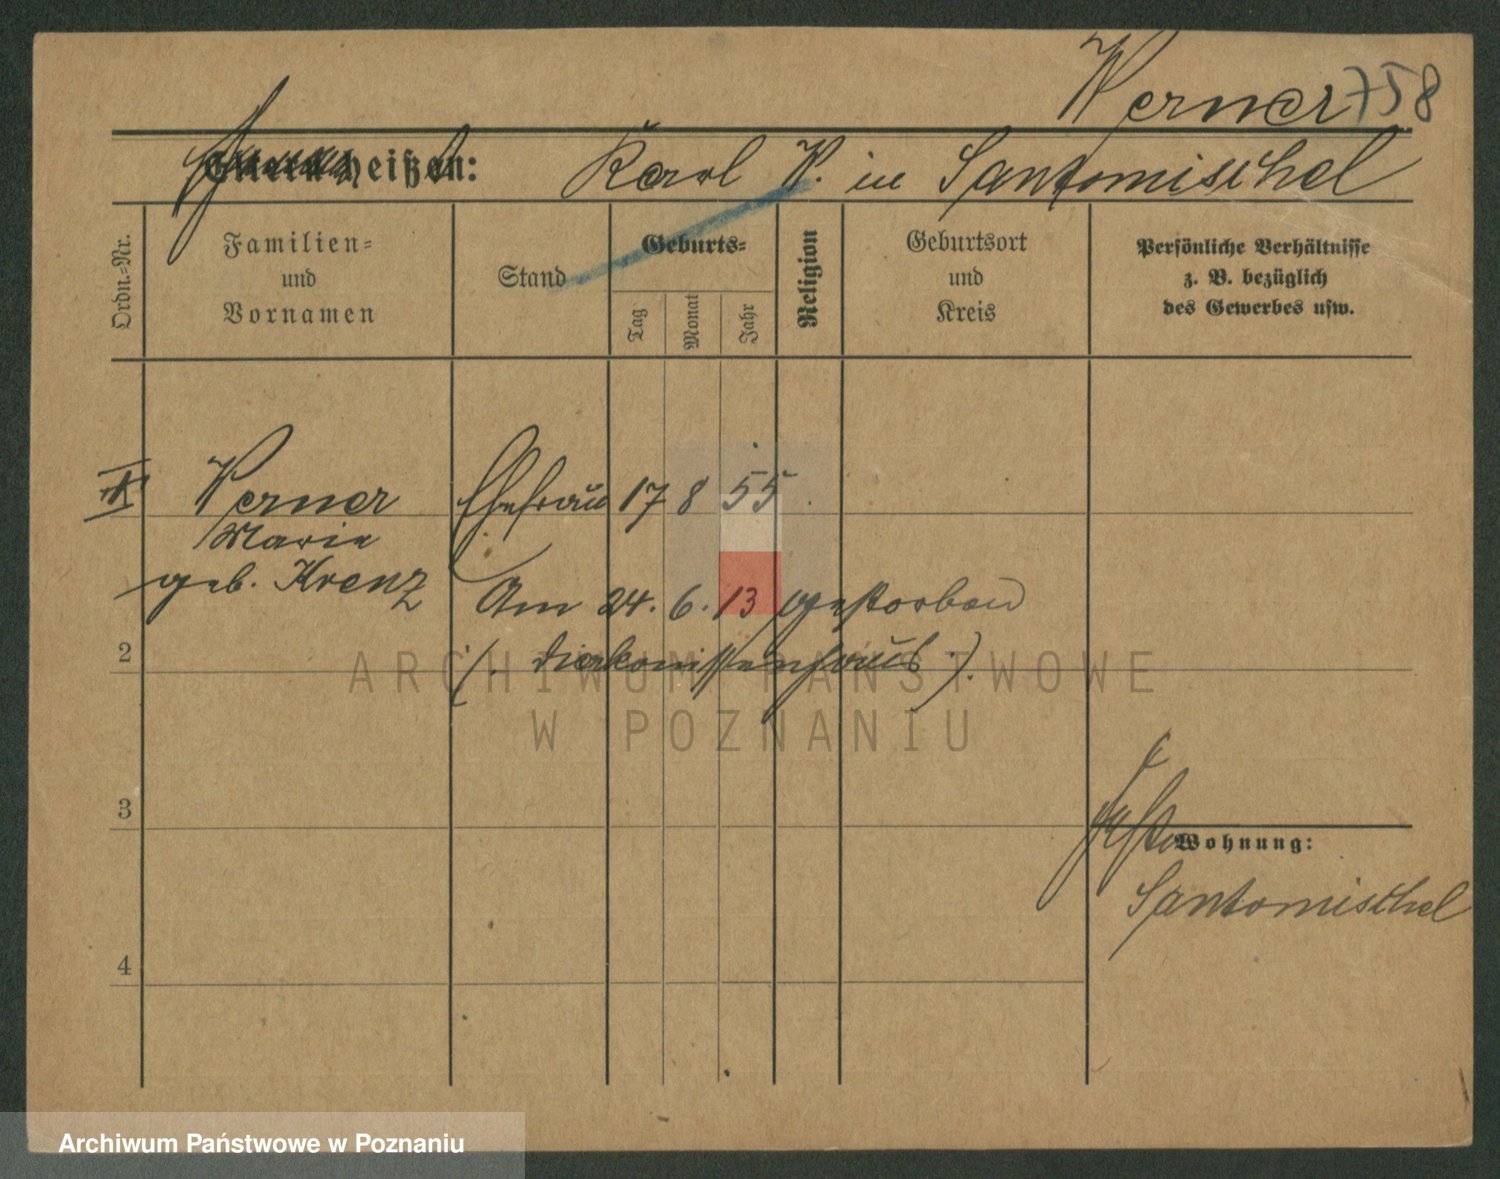 Werner 758
Eltern heißen: Karl W. in Santomischel
Ordn.-Nr.
Familien-
und
Vornamen
Stand
Geburts-
Tag
Monat
Jahr
Religion
Geburtsort
und
Kreis
Persönliche Verhältnisse
z. B. bezüglich
des Gewerbes usw.
Werner Ehefrau 17 8 55
Marie
geb. Krenz
Am 24. 6. 13 gestorben
2 (: Diakonissenhaus :)
ARCHIWUM PAŃSTWOWE
W POZNANIU
3
Wohnung:
Santomischel
4
Archiwum Państwowe w Poznaniu